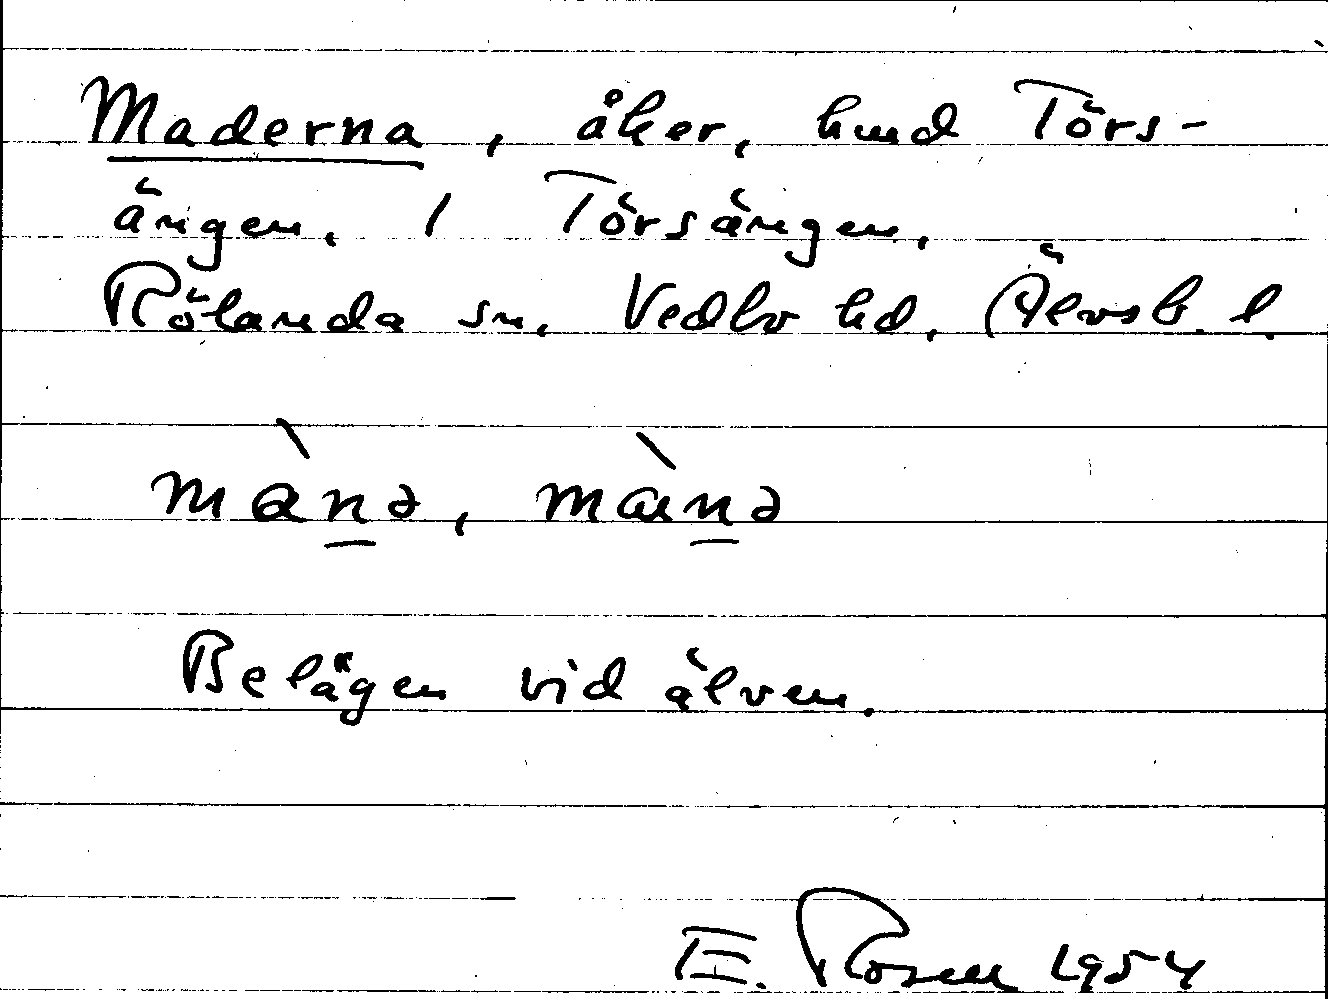 Maderna, åker, hmd Törs-
ängen. 1 Törsängen.
Rölanda sn. Vedbo hd. Älvsb. l.
mànə, màinə
Belägen vid älven.
E. Rosell 1954